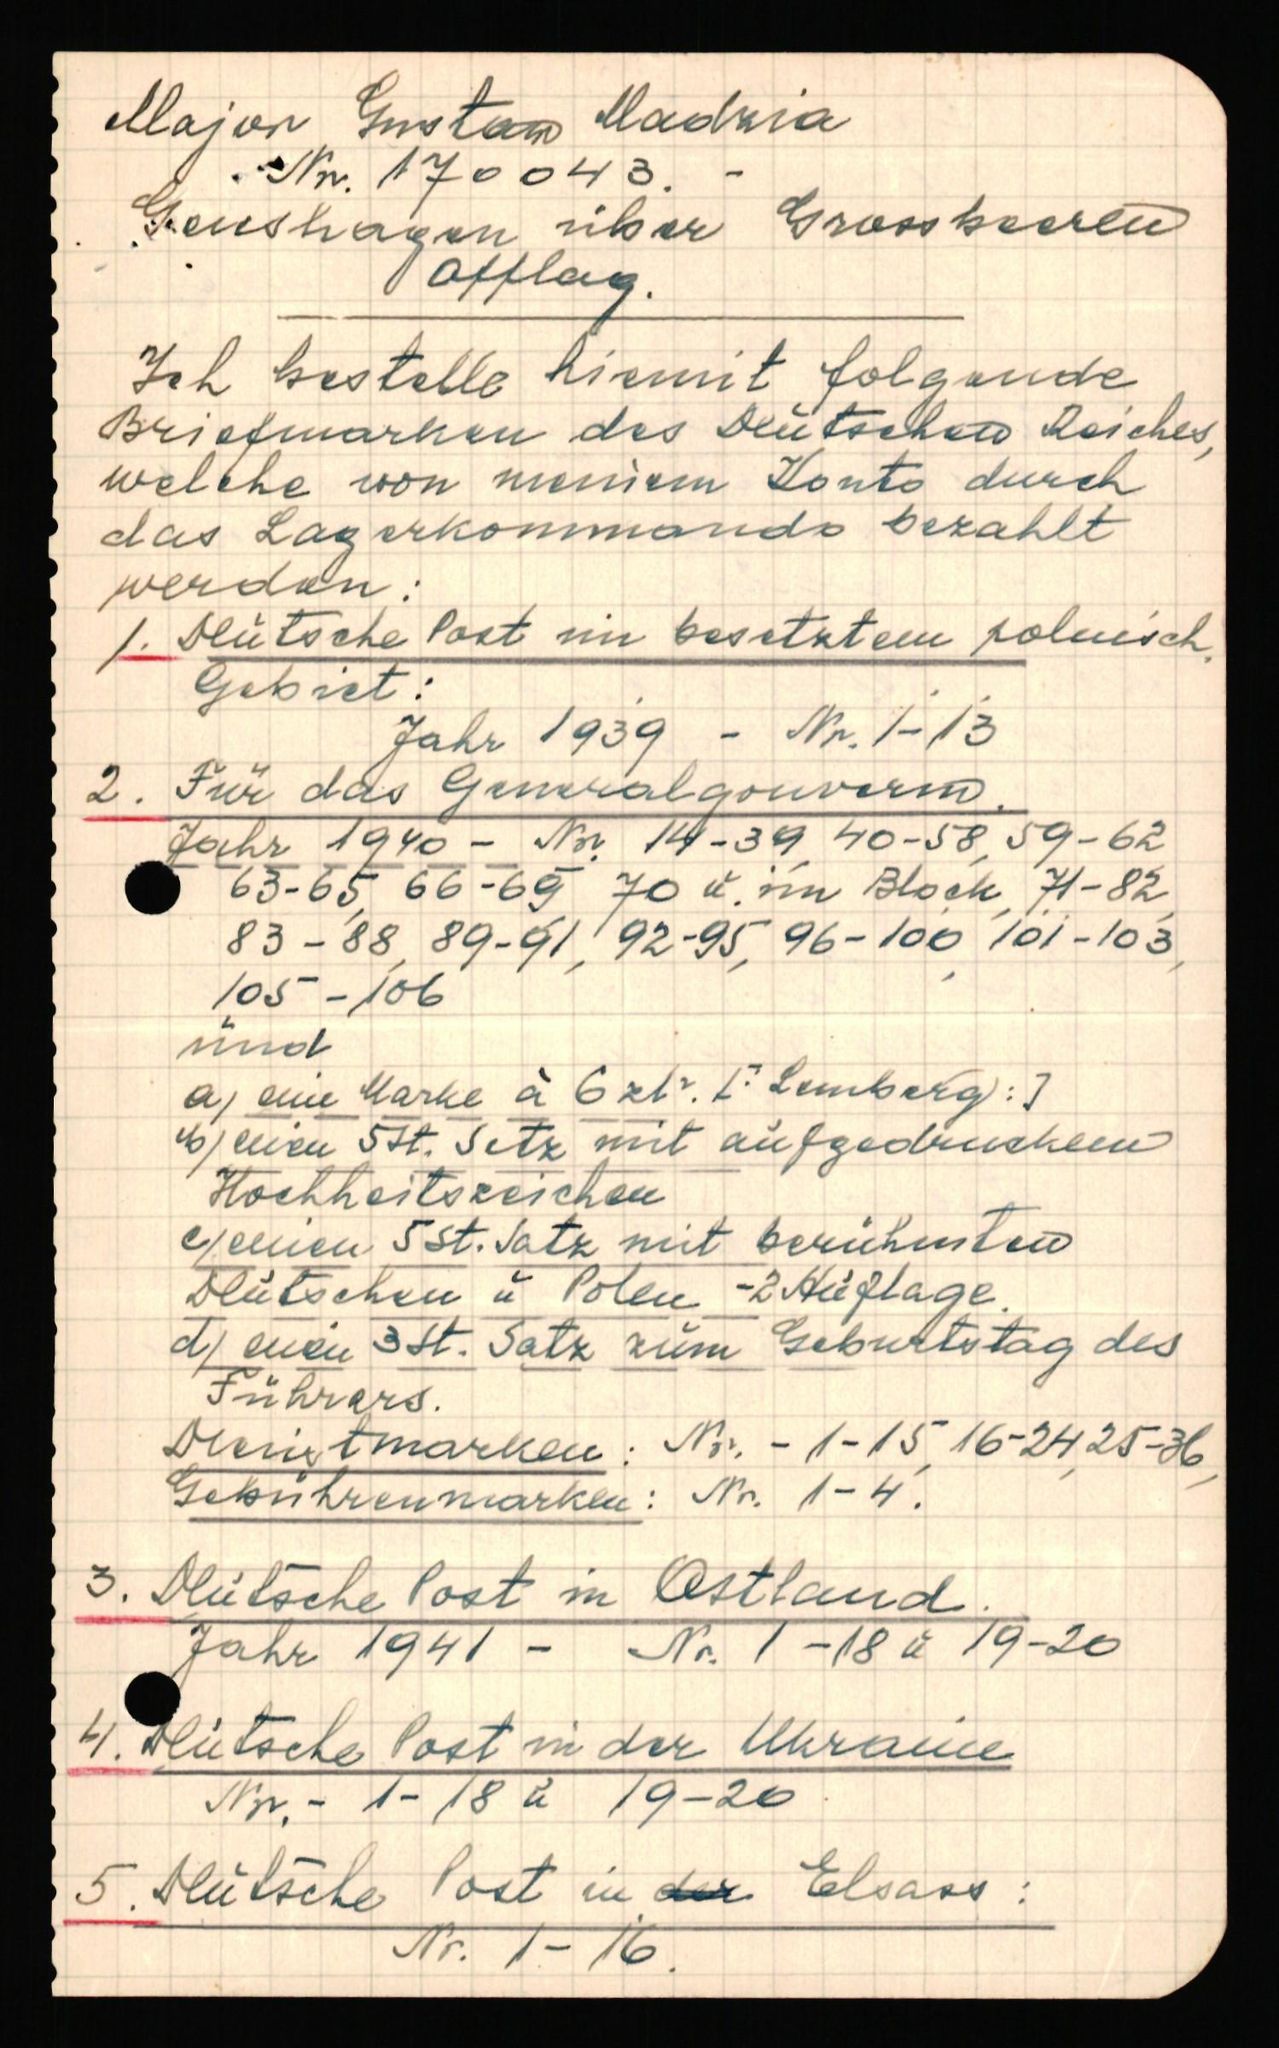 Major Gustaw Madzia
Nr. 170043. -
Genshagen über Grossbeeren
Offlag.
Ich bestelle hiemit folgende
Briefmarken des Deutschen Reiches,
welche von meinem Konto durch
das Lagerkommando bezahlt
werden:
1. Deutsche Post im besetztem polnisch.
Gebiet:
Jahr 1939 - Nr. 1-13
2. Für das Generalgouvern.
Jahr 1940 - Nr. 14-39, 40-58, 59-62
63-65, 66-69 70 ŭ. im Block, 71-82,
83-88, 89-91, 92-95, 96-100, 101-103,
105-106
ŭnd
a) eine Marke à 6 zł. [: Lemberg :]
b) einen 5 St. Setz mit aŭfgedruckem
Hochheitszeichen
c) einen 5 St. Satz mit berühmten
Deŭtschen ŭ Polen - 2 Aŭflage.
d) einen 3 St. Satz zŭm Gebŭrtstag des
Führers.
Dienstmarken: Nr. - 1-15, 16-24, 25-36,
Gebührenmarken: Nr. 1-4.
3. Deŭtsche Post in Ostland.
Jahr 1941 - Nr. 1-18 ŭ 19-20
4. Deŭtsche Post in der Ukraine
Nr. - 1-18 ŭ 19-20
5. Deŭtsche Post in der Elsass:
Nr. 1-16.